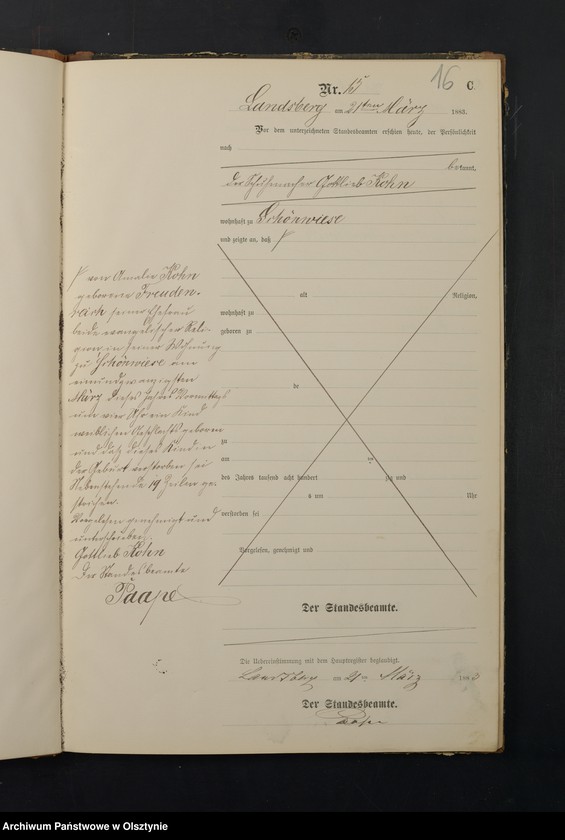 16
Nr. 15 C
Landsberg am 21ten März 1883.
Vor dem unterzeichneten Standesbeamten erschien heute, der Persönlichkeit
nach
bekannt,
der Schuhmacher Gottlieb Kohn
wohnhaft zu Schönwiese
und zeigte an, daß
von Amalie Kohn
geborenen Freuden-
reich seiner Ehefrau
beide evangelischer Reli-
gion in seiner Wohnung
zu Schönwiese am
einundzwanzigsten
März dieses Jahres Vormittags
um vier Uhr ein Kind
weiblichen Geschlechts geboren
und daß dieses Kind in
der Geburt verstorben sei
Nebenstehende 19 Zeilen ge-
strichen.
Vorgelesen genehmigt und
unterschrieben
Gottlieb Kohn
Der Standesbeamte
Paape
alt Religion,
wohnhaft zu
geboren zu
de
zu
am
des Jahres tausend acht hundert zig und
s um Uhr
verstorben sei
Vorgelesen, genehmigt und
Der Standesbeamte.
Die Uebereinstimmung mit dem Hauptregister beglaubigt.
Landsberg am 21ten März 1883
Der Standesbeamte.
Paape
Archiwum Państwowe w Olsztynie